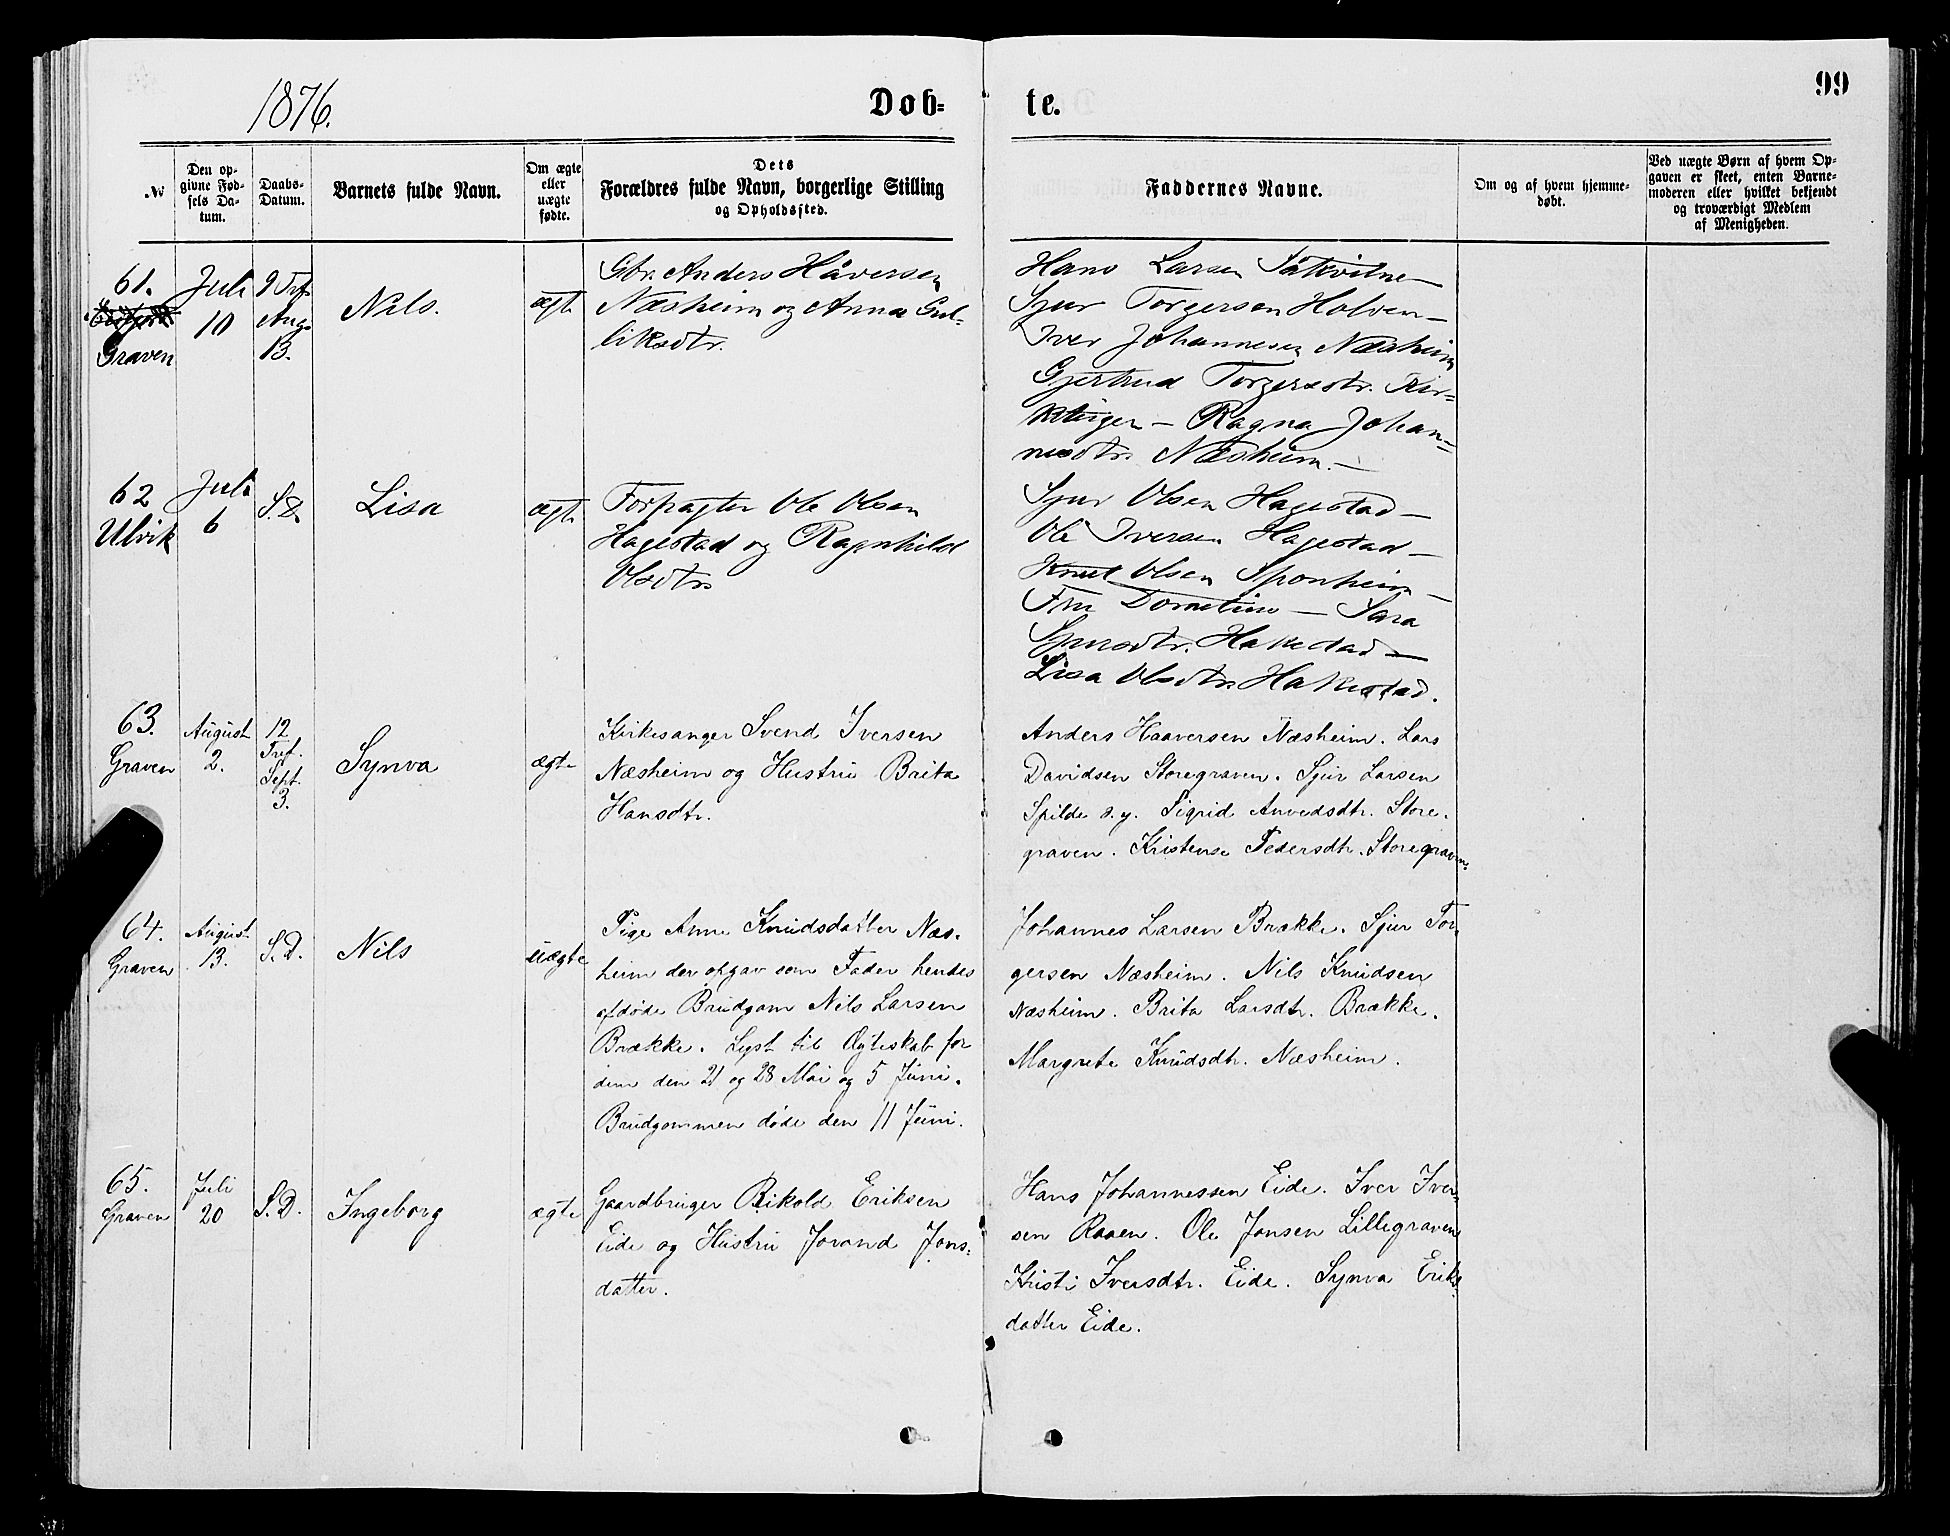 1876.
Døb-
te.
99
№
Den op-
givne Fød-
sels Da-
tum.
Daabs-
Datum.
Barnets fulde Navn.
Om ægte
eller
uægte
fødte.
Dets
Forældres fulde Navn, borgerlige Stilling
og Opholdssted.
Faddernes Navne.
Om og af hvem hjemme-
døbt.
Ved uægte Børn af hvem Op-
gaven er skeet, enten Barne-
moderen eller hvilket bekjendt
og troværdigt Medlem
af Menigheden.
61.
Graven
Juli
10
9 Tref.
Aug.
13.
Nils.
ægt.
Gbr. Anders Håversen
Næsheim og Anna Gul-
liksdtr.
Hans Larsen Säkvitne –
Sjur Torgersen Holven –
Iver Johannesen Næsheim
Gjertrud Torgersdtr. Kir-
– Ragna Johan-
nesdtr. Næsheim. –
62
Ulvik
Juli
6
S. D.
Lisa
ægt.
Forpagter Ole Olsen
Hagestad og Ragnhild
Olsdtr.
Sjur Olsen Hagestad –
Ole Iversen Hagestad –
Knut Olsen Sponheim –
Fru – Sara
Sjursdtr. Hakestad –
Lisa Olsdtr. Hakestad.
63.
Graven
August
2.
12
Tref.
Sept.
3.
Synva
ægte
Kirkesanger Svend Iversen
Næsheim og Hustru Brita
Hansdtr.
Anders Haaversen Næsheim. Lars
Davidsen Storegraven. Sjur Larsen
Spilde s. y. Sigrid Anvedsdtr. Store-
graven. Kristense Pedersdtr. Storegraven.
64.
Graven
August
13.
S. D.
Nils
uægte
Pige Anna Knudsdatter Næs-
heim der opgav som Fader hendes
afdøde Brudgom Nils Larsen
Brække. Lyst til Ægteskab for
dem den 21 og 28 Mai og 5 Juni.
Brudgommen døde den 11 Juni.
Johannes Larsen Brække. Sjur Tor-
gersen Næsheim. Nils Knudsen
Næsheim. Brita Larsdtr. Brække.
Margreta Knudsdtr. Næsheim.
65.
Graven
Juli
20
S. D.
Ingeborg
ægte
Gaardbruger Rikold Eriksen
Eide og Hustru Jorand Jons-
datter.
Hans Johannessen Eide. Iver Iver-
sen Raaen. Ole Jonsen Lillegraven
Kristi Iversdtr. Eide. Synva Eriks-
datter Eide.